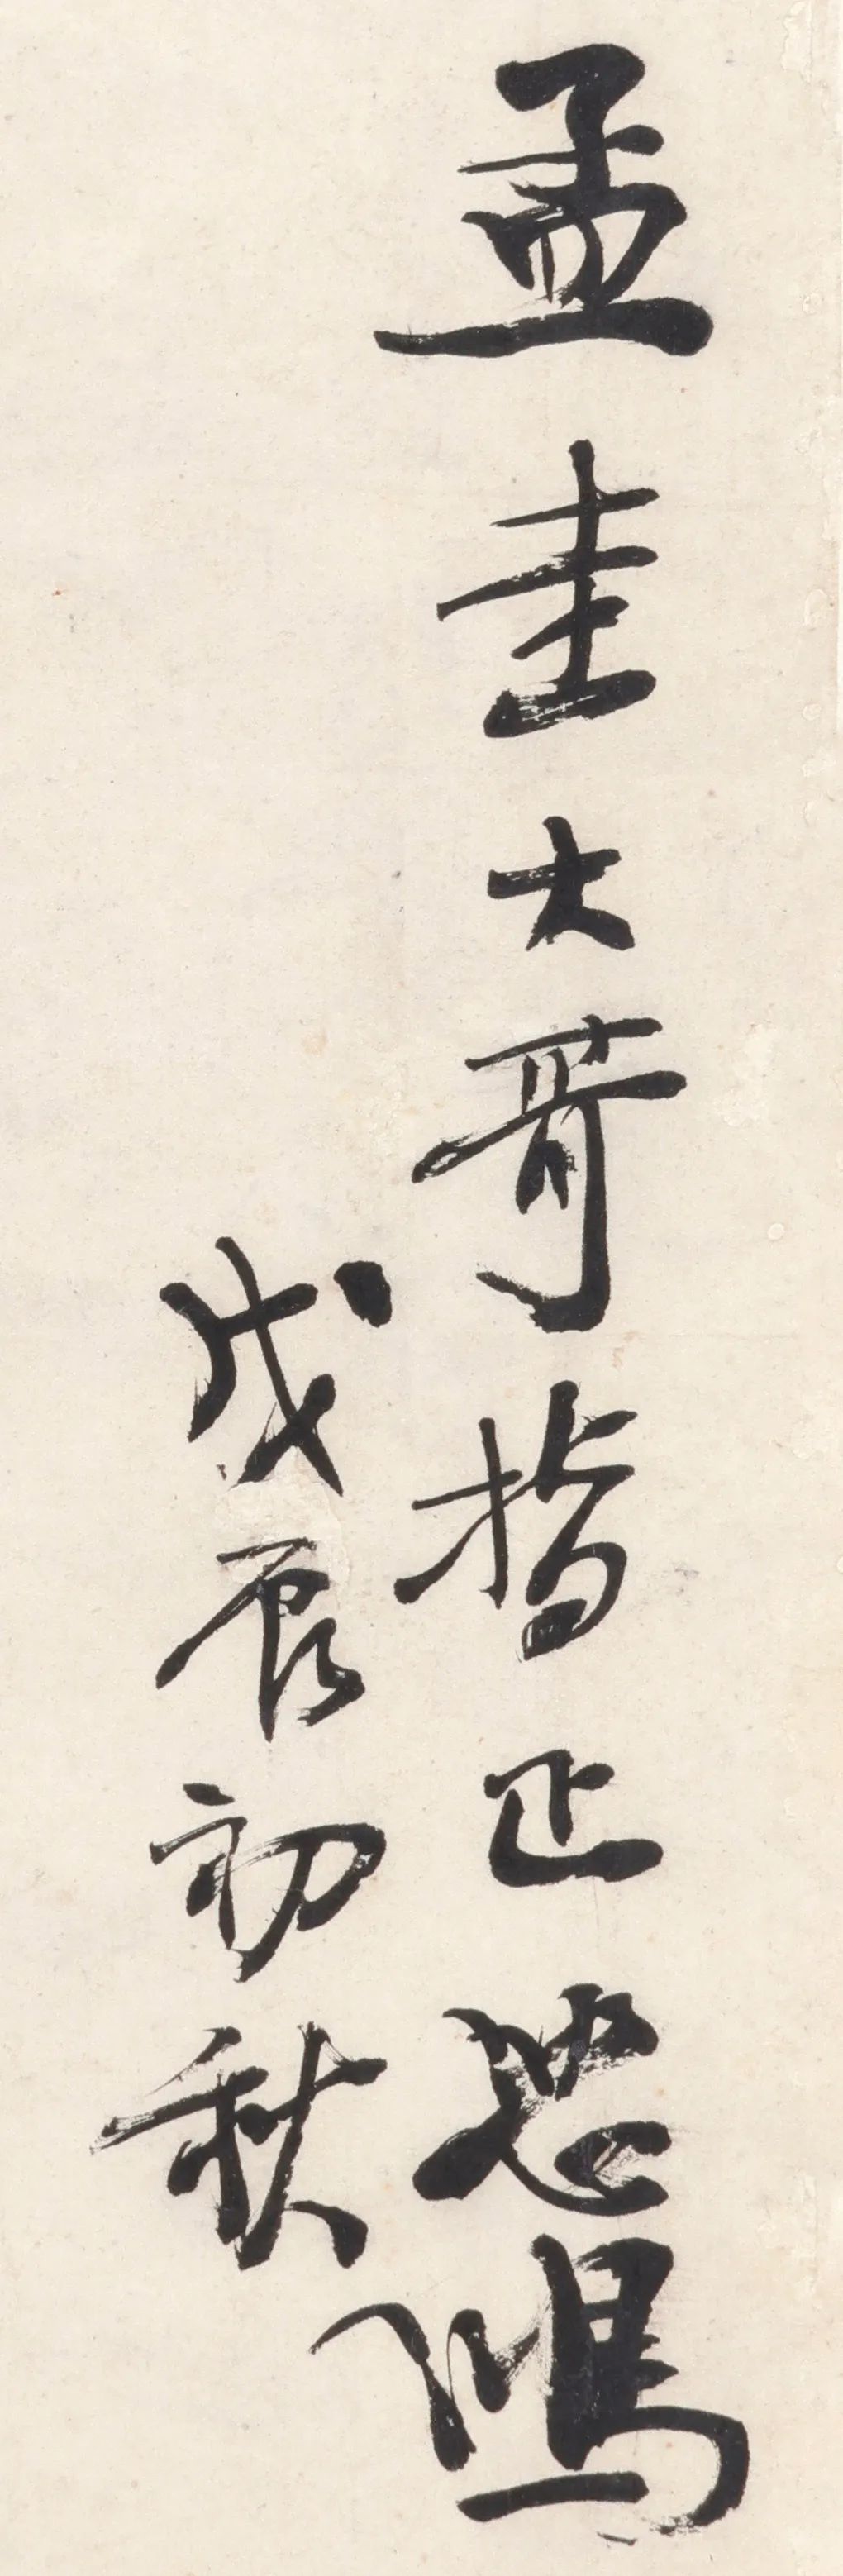 孟圭大哥指正悲鴻
戊辰初秋